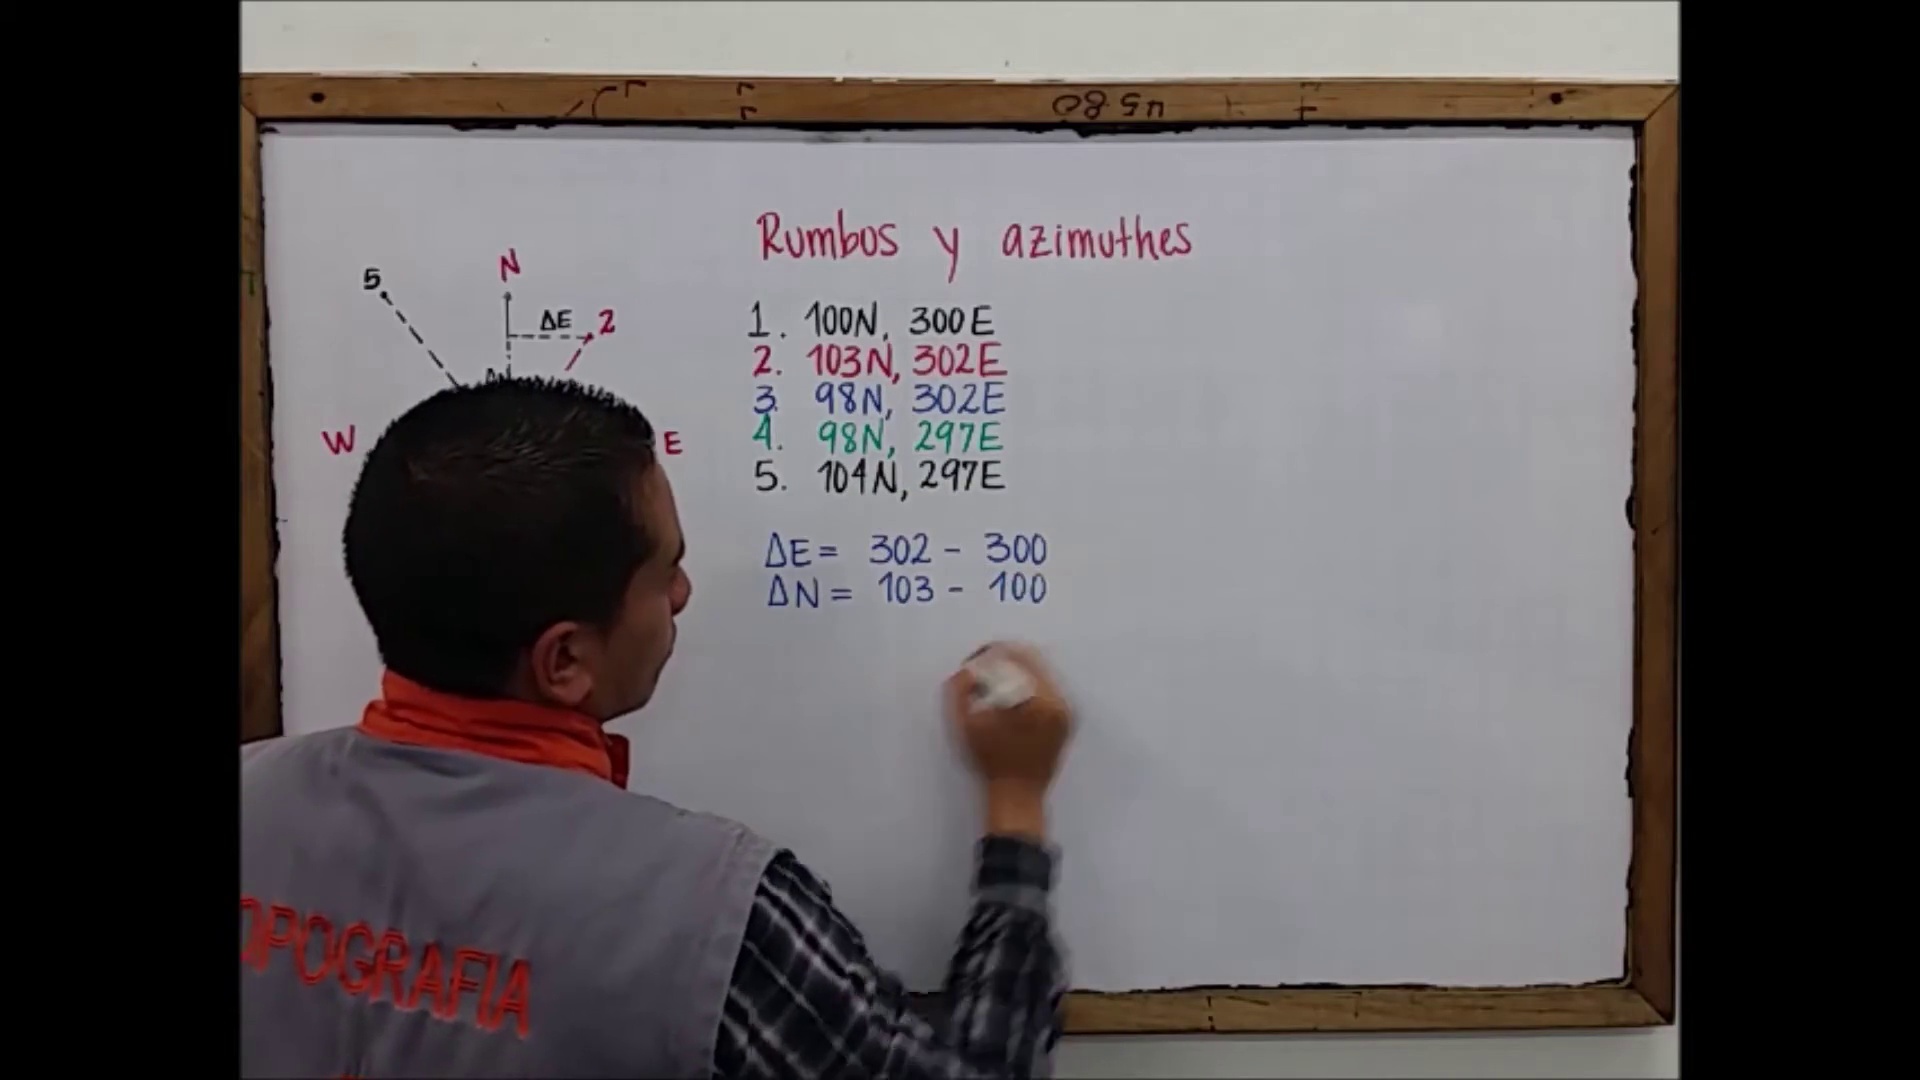 Rumbos y azimuthes
N
5
ΔE 2
W
E
1. 100N, 300E
2. 103N, 302E
3. 98N, 302E
4. 98N, 297E
5. 104N, 297E
ΔE = 302 - 300
ΔN = 103 - 100
OPOGRAFIA